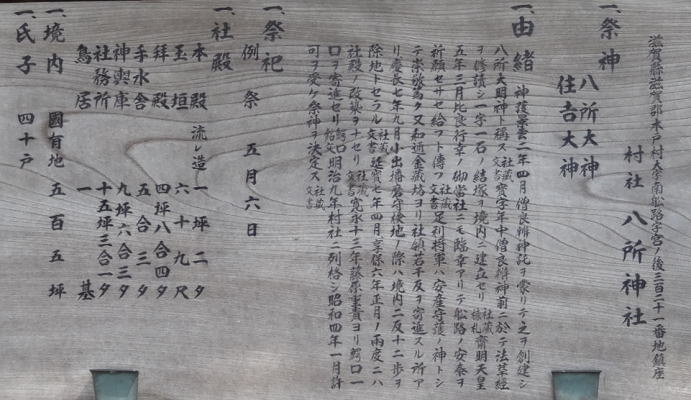 滋賀縣滋賀郡木戸村大字南舩路字宮ノ後三百二十一番地鎮座
村社 八所神社
一、祭神 八所大神
住吉大神
一、由緒 神護景雲二年四月僧良辨神託ヲ蒙リテ之ヲ創建シ
八所大明神ト稱ス 社蔵文書 寳字年中僧良辨神前ニ於テ法華經
ヲ修讀シ一字一石ノ結塚ヲ境内ニ建立セリ 社蔵棟札 齋明天皇
五年三月比良行幸ノ砌當社ニモ臨幸アリテ舩路ノ安泰ヲ
祈願セサセ給フト傳フ 社蔵文書 足利将軍ハ安産守護ノ神トシ
テ崇敬篤ク又和邇金蔵坊ヨリ社領若干反ヲ寄進スル所ア
リ慶長七年九月小出播磨守検地ノ際ハ境内二反十二歩ヲ
除地トセラル 社蔵文書 延寳七年四月享保六年正月ノ兩度ニハ
社殿ノ改築ヲナセリ 社蔵文書 寛永十三年藤原重貴ヨリ鰐口一
口ヲ寄進セリ 鰐口銘文 明治九年村社ニ列格シ昭和四年一月許
可ヲ受ケ祭神ヲ決定ス 社蔵文書
一、祭祀
例祭 五月六日
一、社殿
本殿 流レ造 一坪二夕
玉垣 六十九尺
拜殿 四坪八合四夕
手水舎 五合三夕
神輿庫 九坪六合三夕
社務所 十五坪三合一夕
鳥居 一基
一、境内 國有地 五百五坪
一、氏子 四十戸